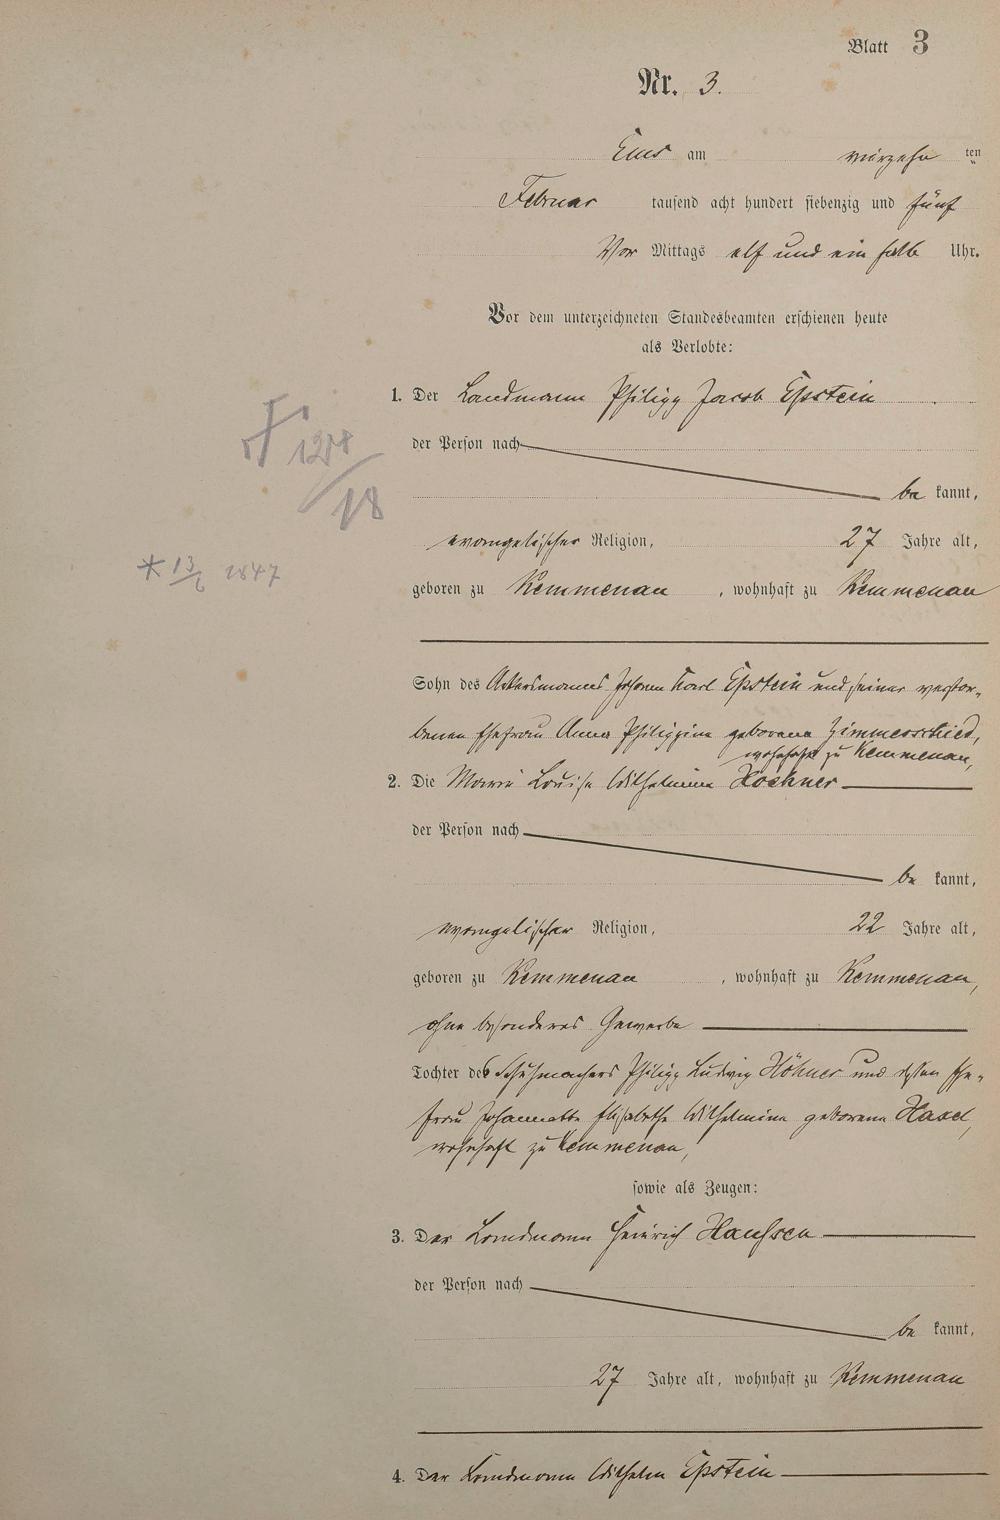 Blatt 3
Nr. 3.
Ems am vierzehn ten
Februar tausend acht hundert siebenzig und fünf
Vor Mittags elf und ein halb Uhr.
Vor dem unterzeichneten Standesbeamten erschienen heute
als Verlobte:
1. Der Landmann Philipp Jacob Epstein
der Person nach
be kannt,
evangelischer Religion, 27 Jahre alt,
* 13/6 1847
geboren zu Kemmenau, wohnhaft zu Kemmenau
Sohn des Ackersmannes Johann Karl Epstein und seiner verstor-
benen Ehefrau Anna Philippine geborene Zimmerschied,
wohnhaft zu Kemmenau,
2. Die Marie Louise Wilhelmine
der Person nach
be kannt,
evangelischer Religion, 22 Jahre alt,
geboren zu Kemmenau, wohnhaft zu Kemmenau,
ohne besonderes Gewerbe
Tochter des Schuhmachers Philipp Ludwig Höhner und dessen Ehe-
frau Johannette Elisabethe Wilhelmine geborene Hasel,
wohnhaft zu Kemmenau,
sowie als Zeugen:
3. Der Landmann Heinrich
der Person nach
be kannt,
27 Jahre alt, wohnhaft zu Kemmenau
4. Der Landmann Wilhelm Epstein